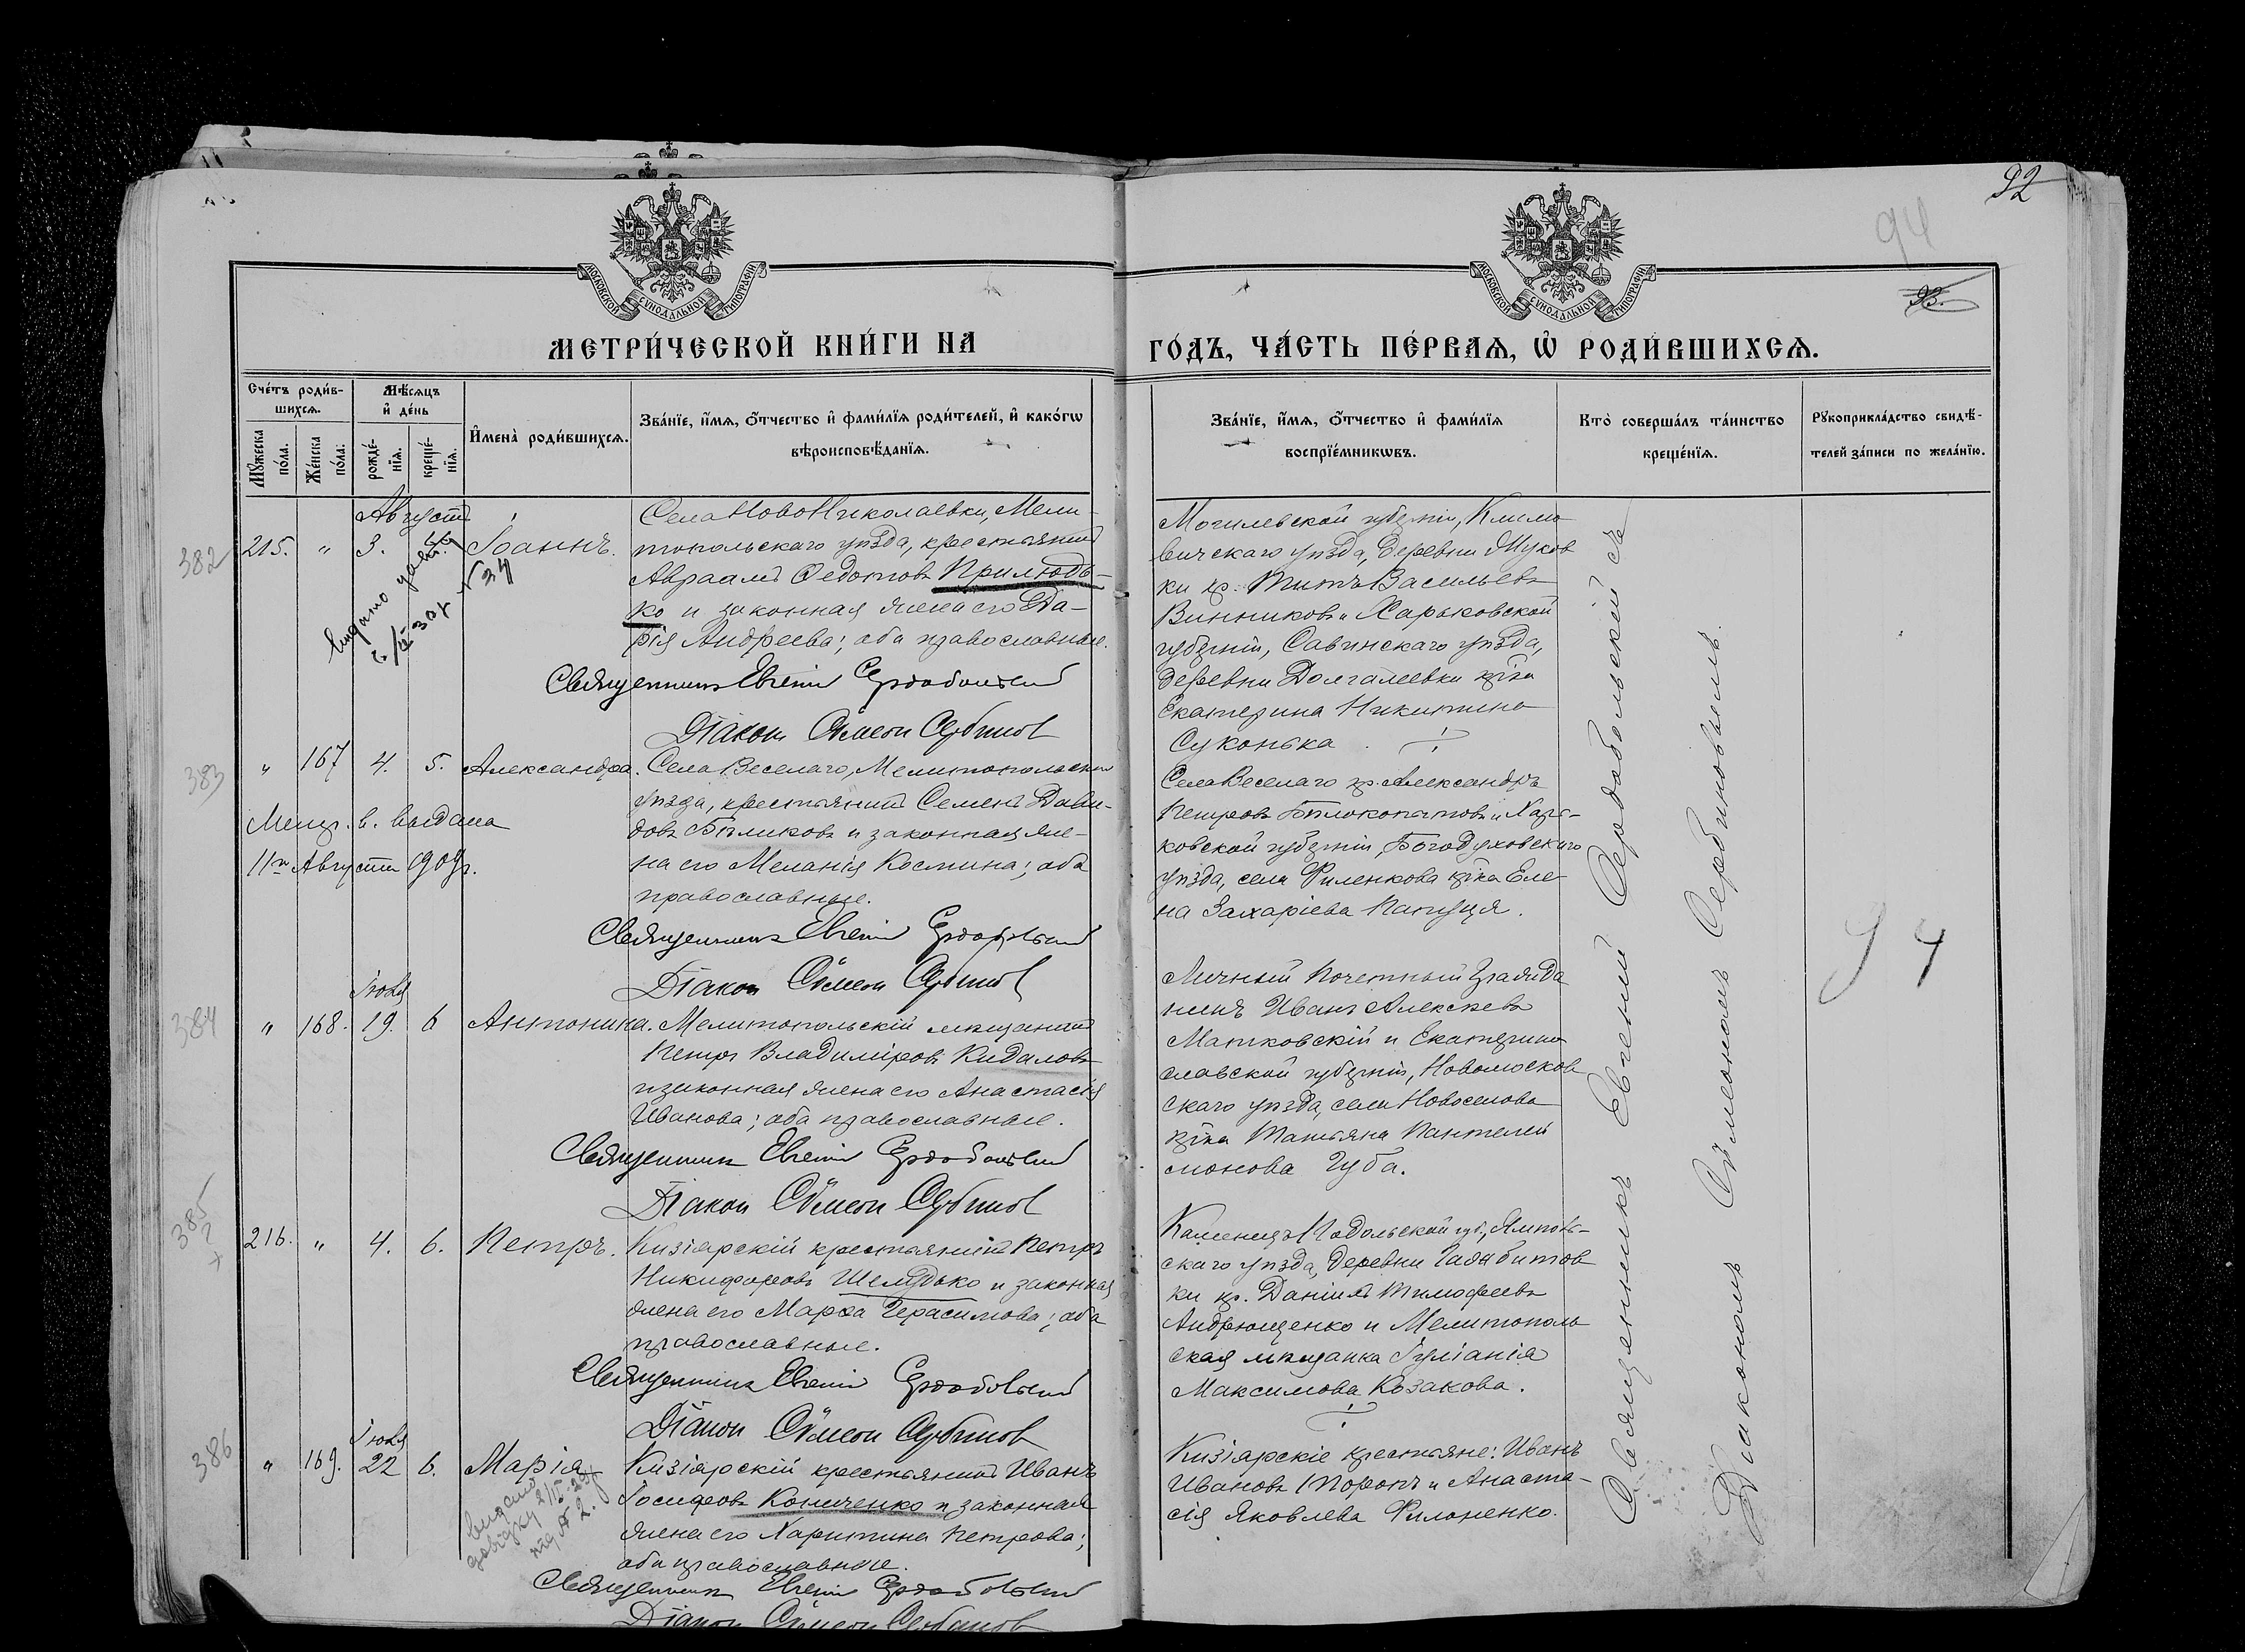 92
94
93.
МОСКОВСКОЙ СѴНОДАЛЬНОЙ ТИПОГРАФІИ
МОСКОВСКОЙ СѴНОДАЛЬНОЙ ТИПОГРАФІИ
МЕТРИ́ЧЕСКОЙ КНИ́ГИ НА
ГО́ДЪ, ЧА́СТЬ ПЕ́РВАѦ, Ѡ҆ РОДИ́ВШИХСѦ.
Сче́тъ роди́в-
шихсѧ.
Мꙋ́жеска по́ла.
Же́нска по́ла.
Мѣ́сѧцъ
и҆ де́нь
рожде́-нїѧ.
креще́-нїѧ.
И҆мена̀ роди́вшихсѧ.
Зва́нїе, и҆́мѧ, ѻ҆́тчество и҆ фами́лїѧ роди́телей, и҆ како́гѡ
вѣроисповѣ́данїѧ.
Зва́нїе, и҆́мѧ, ѻ҆́тчество и҆ фами́лїѧ
воспрїе́мникѡвъ.
Кто̀ соверша́лъ та́инство
креще́нїѧ.
Рꙋкоприкла́дство свидѣ́-
телей за́писи по жела́нїю.
382
Августъ
215. " 3. Іоаннъ.
Села НовоНиколаевки, Мели-
топольскаго уѣзда, крестьянинъ
Авраамъ Ѳедотовъ Прилюдь-
ко и законная жена его Да-
рія Андреева; оба православные.
Священникъ Евгеній Сердобольскій
Діаконъ Сѵмеонъ Сербиновъ
Могилевской губерніи, Климо-
вичскаго уѣзда, деревни Муков
ки кр. Титъ Васильевъ
Винниковъ и Харьковской
губерніи, Савинскаго уѣзда,
деревни Долгалевки кр-ка
Екатерина Никитина
Суконька.
383
" 167 4. 5. Александра.
Метр. в. выдана
11го Августа 1909г.
Села Веселаго, Мелитопольскаго
уѣзда, крестьянинъ Семенъ Дави-
довъ Бѣликовъ и законная же-
на его Меланія Космина; оба
православные.
Священникъ Евгеній Сердобольскій
Діаконъ Сѵмеонъ Сербиновъ
Села Веселаго кр. Александръ
Петровъ Бѣлокопытовъ и Харь-
ковской губерніи, Богодуховскаго
уѣзда, села Филенкова кр-ка Еле-
на Захаріева Папуця.
384
Іюля
" 168. 19. 6 Антонина.
Мелитопольскій мѣщанинъ
Петръ Владиміровъ Кидаловъ
и законная жена его Анастасія
Иванова; оба православные.
Священникъ Евгеній Сердобольскій
Діаконъ Сѵмеонъ Сербиновъ
Личный Почетный Гражда
нинъ Иванъ Алексѣевъ
Матковскій и Екатерино
славской губерніи, Новомосков
скаго уѣзда, села Новоселова
кр-ка Татьяна Пантелей
монова Губа.
94
385
216. " 4. 6. Петръ.
Кизіярскій крестьянинъ Петръ
Никифоровъ Шелудько и законная
жена его Марѳа Герасимова; оба
православные.
Священникъ Евгеній Сердобольскій
Діаконъ Сѵмеонъ Сербиновъ
Каменецъ Подольской губ., Ямполь-
скаго уѣзда, деревни Галабитов
ки кр. Даніилъ Тимоѳеевъ
Андрющенко и Мелитополь
ская мѣщанка Іуліанія
Максимова Козакова.
386
Іюля
" 169. 22 6. Марія
Кизіярскій крестьянинъ Иванъ
Іосифовъ Конченко и законная
жена его Харитина Петрова;
оба православные.
Священникъ Евгеній Сердобольскій
Діаконъ Сѵмеонъ Сербиновъ
Кизіярскіе крестьяне: Иванъ
Ивановъ Поротъ и Анаста-
сія Яковлева Филоненко.
Священникъ Евгеній Сердобольскій съ
Діакономъ Сѵмеономъ Сербиновымъ.